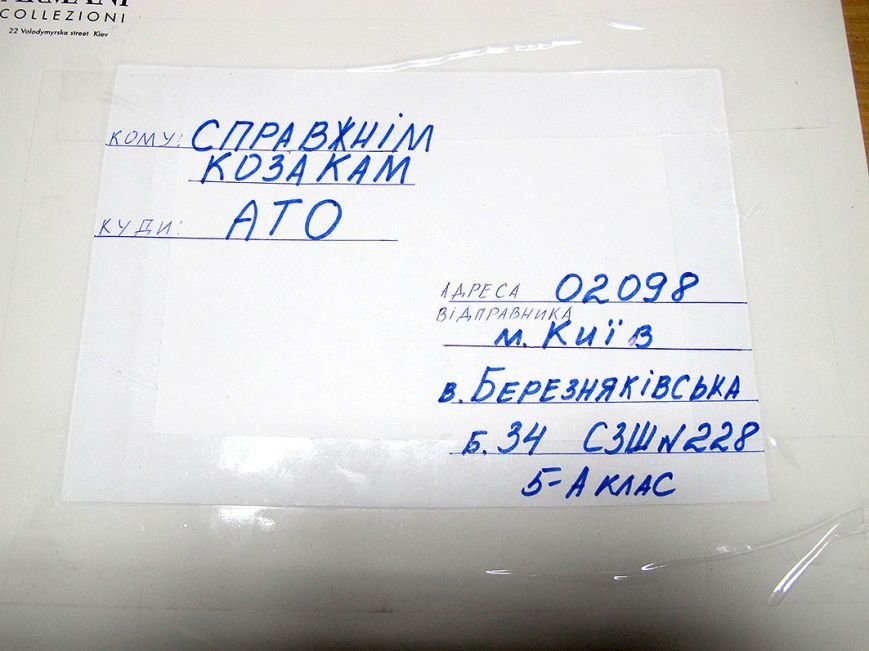 ARMANI
COLLEZIONI
22 Volodymyrska street Kiev
КОМУ: СПРАВЖНІМ
КОЗАКАМ
КУДИ: АТО
АДРЕСА 02098
ВІДПРАВНИКА
м. Київ
в. БЕРЕЗНЯКІВСЬКА
Б. 34 СЗШ №228
5-А КЛАС